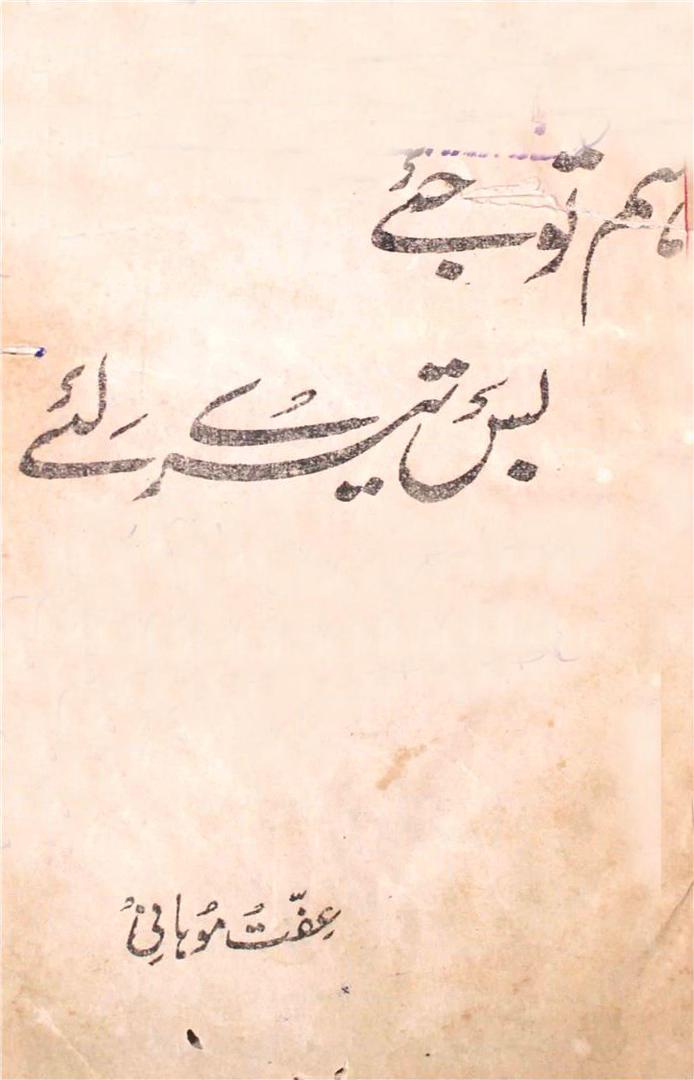 ہم تو جئے
بس تیرے لئے
عفّت موہانی